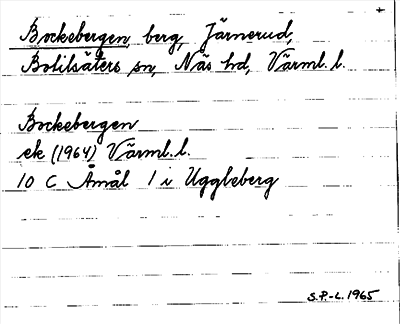 +
Bockebergen, berg, Järnerud,
Botilsäters sn, Näs hd, Värml. l.
Bockebergen
ek (1964) Värml. l.
10 C Åmål 1 i Uggleberg
S.P.-L. 1965